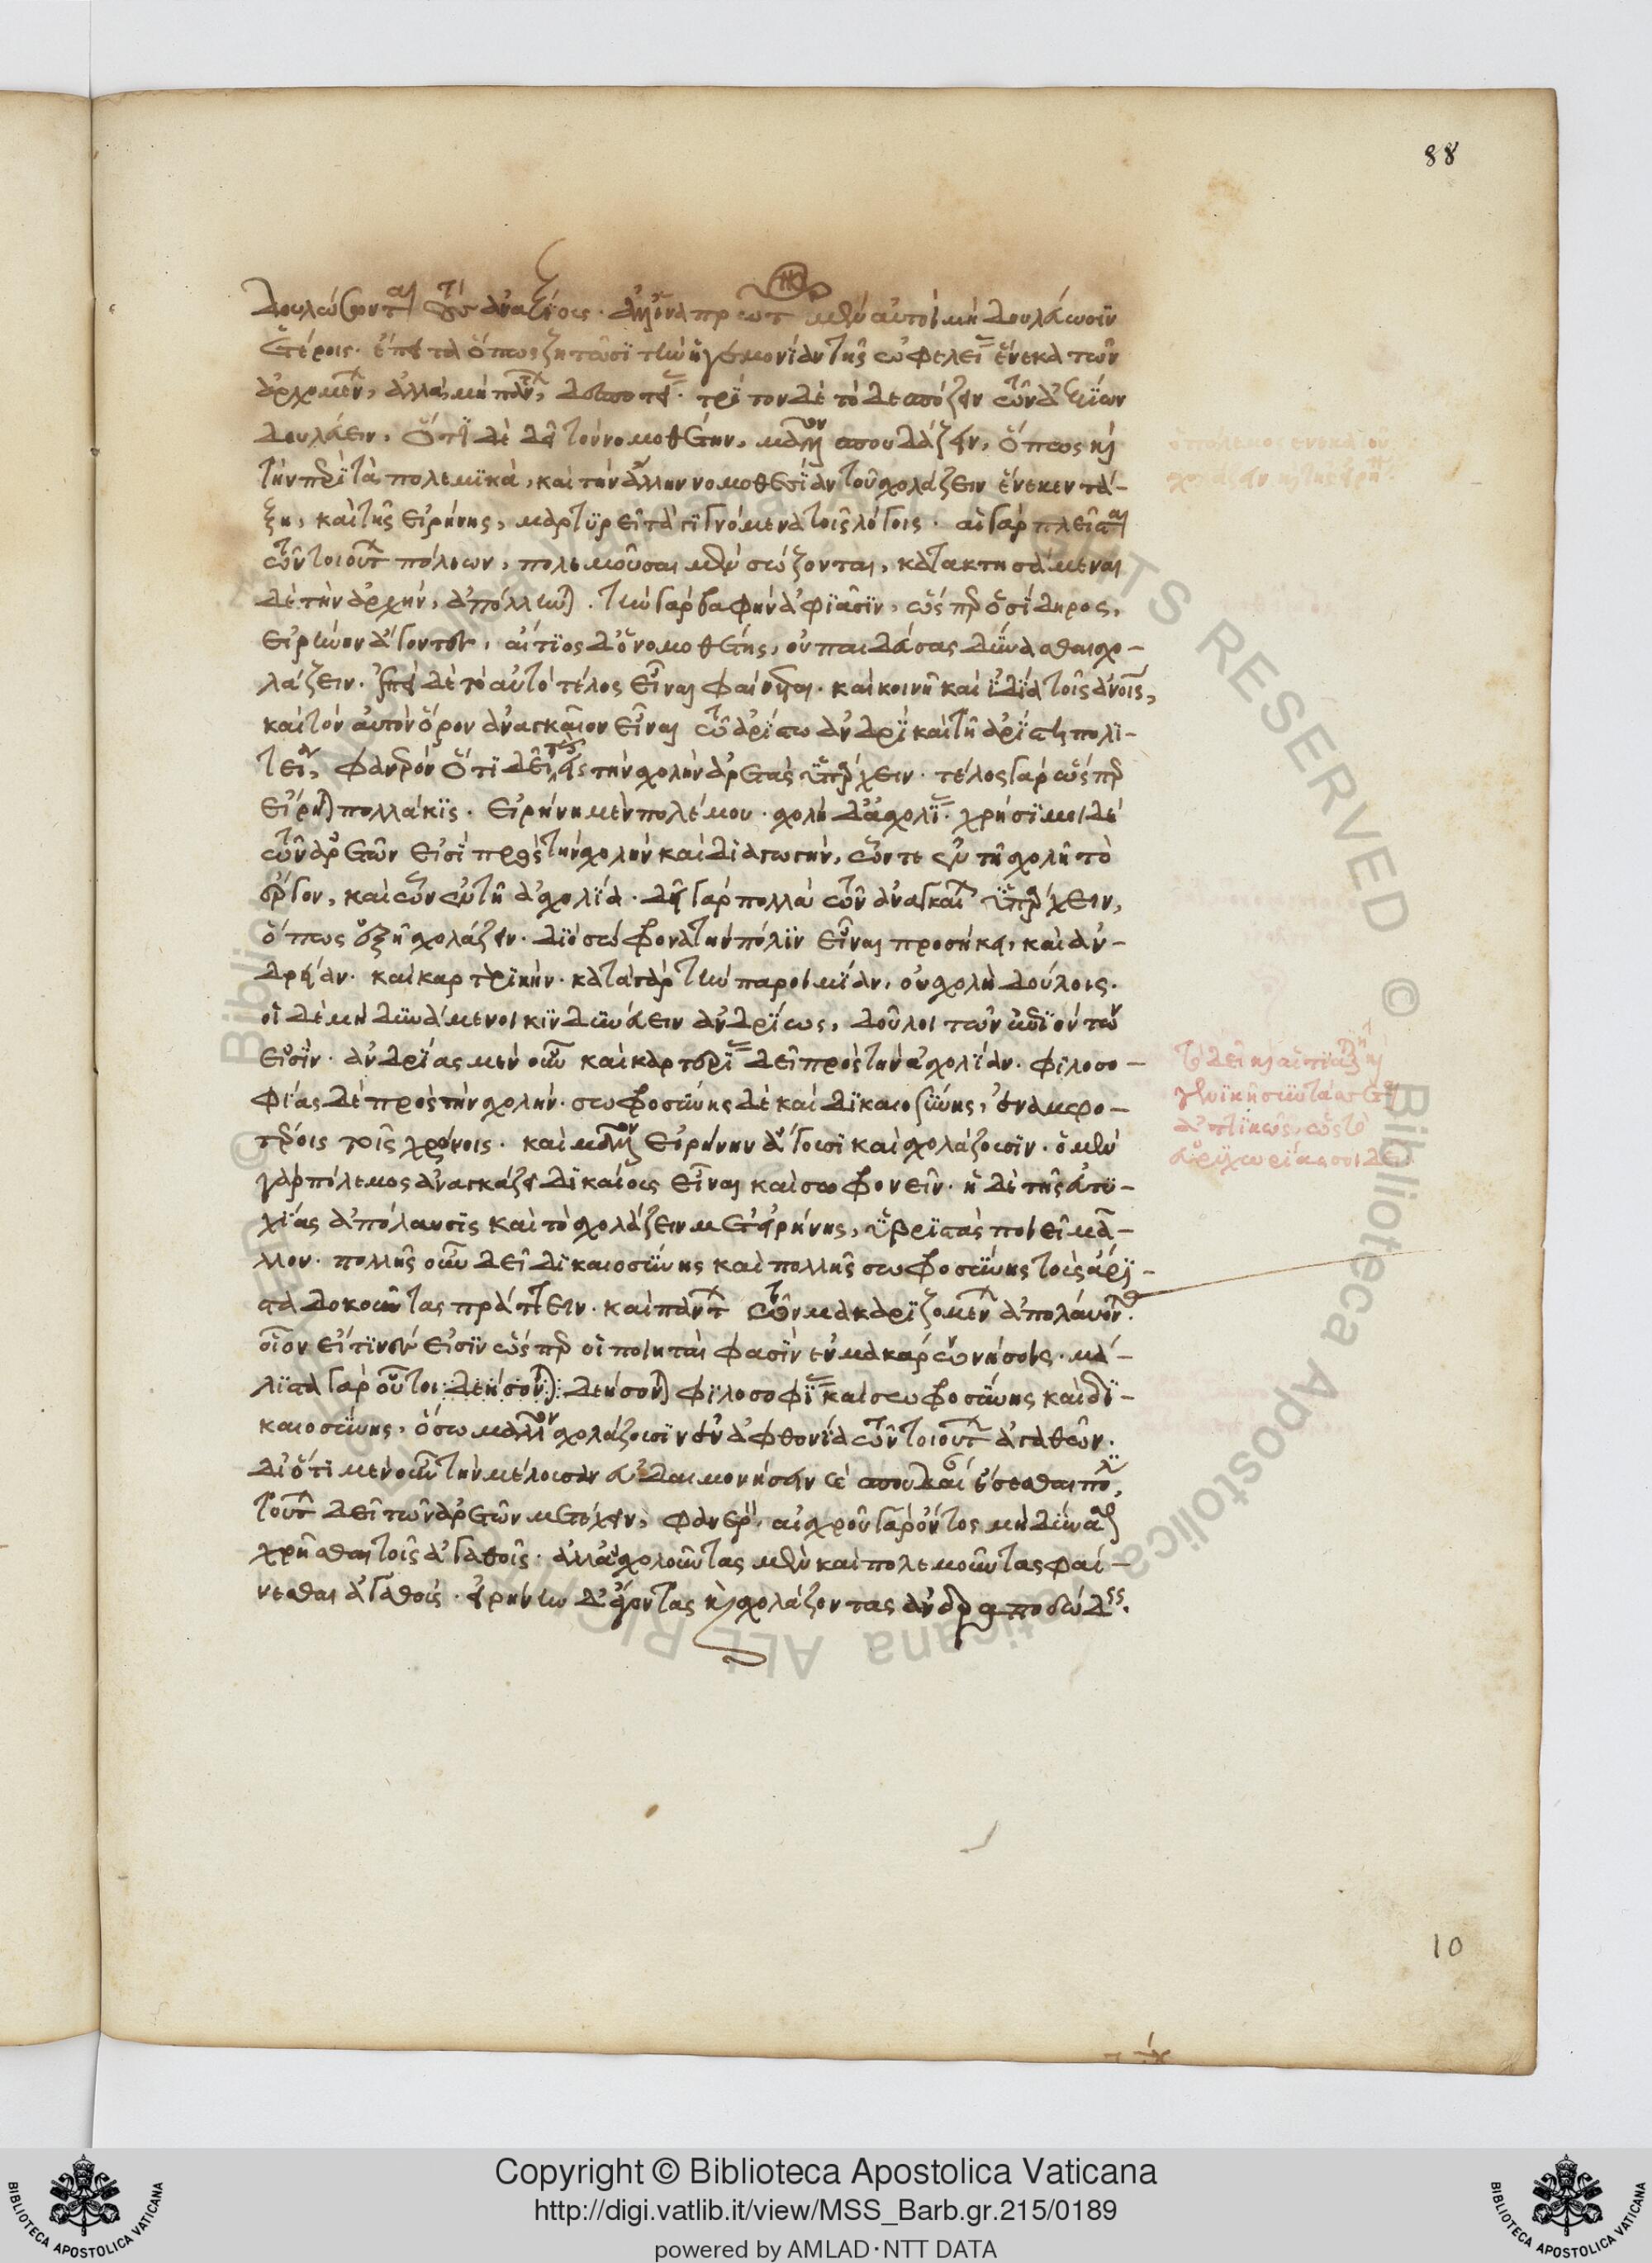 δουλώσωνται τοὺς ἀναξίους. ἀλλ' ἵνα πρῶτον μὲν αὐτοὶ μὴ δουλεύωσιν
ἑτέροις. ἔπειτα ὅπως ζητῶσι τὴν ἡγεμονίαν τῆς ὠφελείας ἕνεκα τῶν
ἀρχομένων, ἀλλὰ μὴ πάντων δεσποτείας. τρίτον δὲ τὸ δεσπόζειν τῶν ἀξίων
δουλεύειν. ὅτι δὲ δεῖ τὸν νομοθέτην, μᾶλλον σπουδάζειν, ὅπως καὶ
τὴν περὶ τὰ πολεμικὰ, καὶ τὴν ἄλλην νομοθεσίαν τοῦ σχολάζειν ἕνεκεν τά-
ξη, καὶ τῆς εἰρήνης, μαρτυρεῖ τὰ γιγνόμενα τοῖς λόγοις. αἱ γὰρ πλεῖσται
τῶν τοιούτων πόλεων, πολεμοῦσαι μὲν σώζονται, κατακτησάμεναι
δὲ τὴν ἀρχὴν, ἀπόλλυνται. τὴν γὰρ βαφὴν ἀφιᾶσιν, ὥσπερ ὁ σίδηρος,
εἰρήνην ἄγοντες. αἴτιος δ' ὁ νομοθέτης, οὐ παιδεύσας δύνασθαι σχο-
λάζειν. ἐπεὶ δὲ τὸ αὐτὸ τέλος εἶναι φαίνεται. καὶ κοινῇ καὶ ἰδίᾳ τοῖς ἀνοις,
καὶ τὸν αὐτὸν ὅρον ἀναγκαῖον εἶναι τῷ ἀρίστῳ ἀνδρὶ καὶ τῇ ἀρίστῃ πολι-
τείᾳ, φανερὸν ὅτι δεῖ τὰς εἰς τὴν σχολὴν ἀρετὰς ὑπάρχειν. τέλος γὰρ ὥσπερ
εἴρηται πολλάκις. εἰρήνη μὲν πολέμου. σχολὴ δ' ἀσχολίας. χρήσιμοι δὲ
τῶν ἀρετῶν εἰσὶ πρὸς τὴν σχολὴν καὶ διαγωγὴν, ὧν τε ἐν τῇ σχολῇ τὸ
ἔργον, καὶ ὧν ἐν τῇ ἀσχολίᾳ. δεῖ γὰρ πολλὰ τῶν ἀναγκαίων ὑπάρχειν,
ὅπως ἐξῇ σχολάζειν. διὸ σώφρονα τὴν πόλιν εἶναι προσήκει, καὶ ἀν-
δρείαν. καὶ καρτερικήν. κατὰ γὰρ τὴν παροιμίαν, οὐ σχολὴ δούλοις.
οἱ δὲ μὴ δυνάμενοι κινδυνεύειν ἀνδρείως, δοῦλοι τῶν ἐπιόντων
εἰσίν. ἀνδρίας μὲν οὖν καὶ καρτερίας δεῖ πρὸς τὴν ἀσχολίαν. φιλοσο-
φίας δὲ πρὸς τὴν σχολήν. σωφροσύνης δὲ καὶ δικαιοσύνης, ἐν ἀμφο-
τέροις τοῖς χρόνοις. καὶ μᾶλλον εἰρήνην ἄγουσι καὶ σχολάζουσιν. ὁ μὲν
γὰρ πόλεμος ἀναγκάζει δικαίους εἶναι καὶ σωφρονεῖν. ἡ δὲ τῆς εὐτυ-
χίας ἀπόλαυσις καὶ τὸ σχολάζειν μετ' εἰρήνης, ὑβριστὰς ποιεῖ μᾶ-
λλον. πολλῆς οὖν δεῖ δικαιοσύνης καὶ πολλῆς σωφροσύνης τοὺς ἄρι-
στα δοκοῦντας πράττειν. καὶ πάντων τῶν μακαριζομένων ἀπολαύοντας.
οἷον εἴ τινές εἰσιν ὥσπερ οἱ ποιηταί φασιν ἐν μακάρων νήσοις. μά-
λιστα γὰρ οὗτοι δεήσονται δεήσονται φιλοσοφίας καὶ σωφροσύνης καὶ δι-
καιοσύνης, ὅσῳ μᾶλλον σχολάζουσιν ἐν ἀφθονίᾳ τῶν τοιούτων ἀγαθῶν.
διότι μὲν οὖν τὴν μέλλουσαν εὐδαιμονήσειν καὶ σπουδαίαν ἔσεσθαι πόλιν,
τούτων δεῖ τῶν ἀρετῶν μετέχειν, φανερόν. αἰσχροῦ γὰρ ὄντος μὴ δύνασθαι
χρῆσθαι τοῖς ἀγαθοῖς. ἀλλ' ἀσχολοῦντας μὲν καὶ πολεμοῦντας φαί-
νεσθαι ἀγαθοὺς. εἰρήνην δ' ἄγοντας καὶ σχολάζοντας ἀνδραποδώδεις.
88
10
Copyright © Biblioteca Apostolica Vaticana
http://digi.vatlib.it/view/MSS_Barb.gr.215/0189
powered by AMLAD·NTT DATA
BIBLIOTECA APOSTOLICA VATICANA
BIBLIOTECA APOSTOLICA VATICANA
© Biblioteca Apostolica Vaticana ALL RIGHTS RESERVED